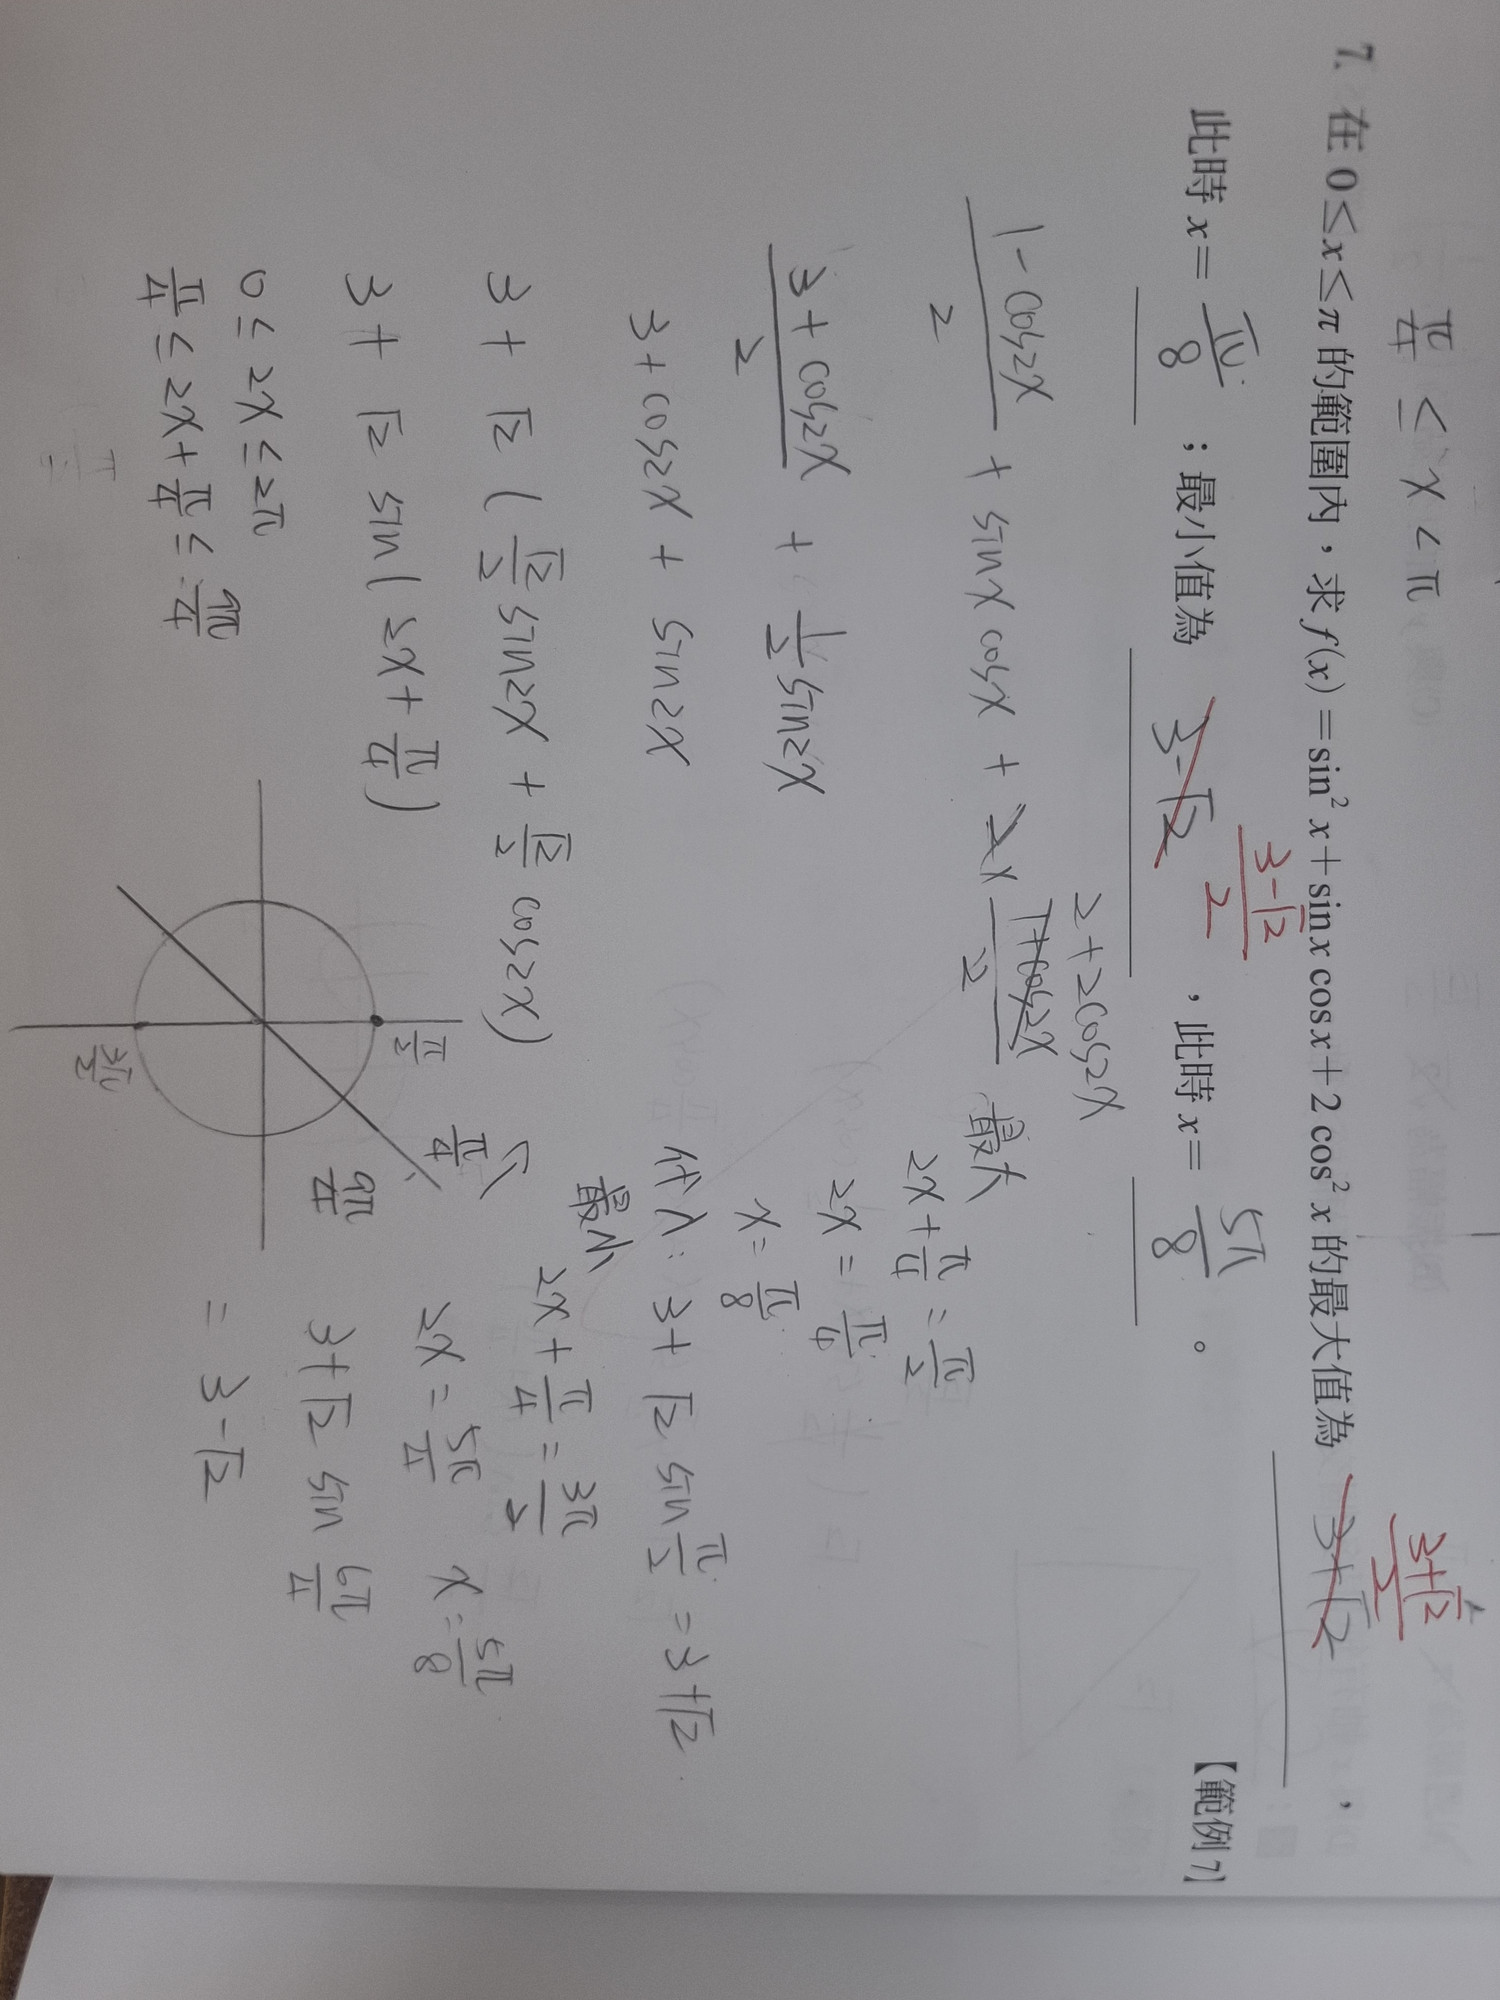 π/4 ≤ x < π
7. 在 0≤x≤π 的範圍內，求 f(x)=sin²x+sinx cosx+2cos²x 的最大值為 3+√2 (3+√2)/2 ，
此時 x= π/8 ；最小值為 3-√2 (3-√2)/2 ，此時 x= 5π/8 。 【範例7】
2+2cos2x
(1-cos2x)/2 + sinx cosx + 2x (1+cos2x)/2
(3+cos2x)/2 + 1/2 sin2x
3+cos2x + sin2x
3+ √2 ( √2/2 sin2x + √2/2 cos2x)
3+ √2 sin(2x+π/4)
0≤2x≤2π
π/4 ≤ 2x+π/4 ≤ 9π/4
π/2
π/4
9π/4
3π/2
最大
2x+π/4=π/2
2x=π/4
x=π/8
代入: 3+ √2 sin π/2 = 3+√2
最小
2x+π/4=3π/2
2x=5π/4 x=5π/8
3+√2 sin 6π/4
= 3-√2